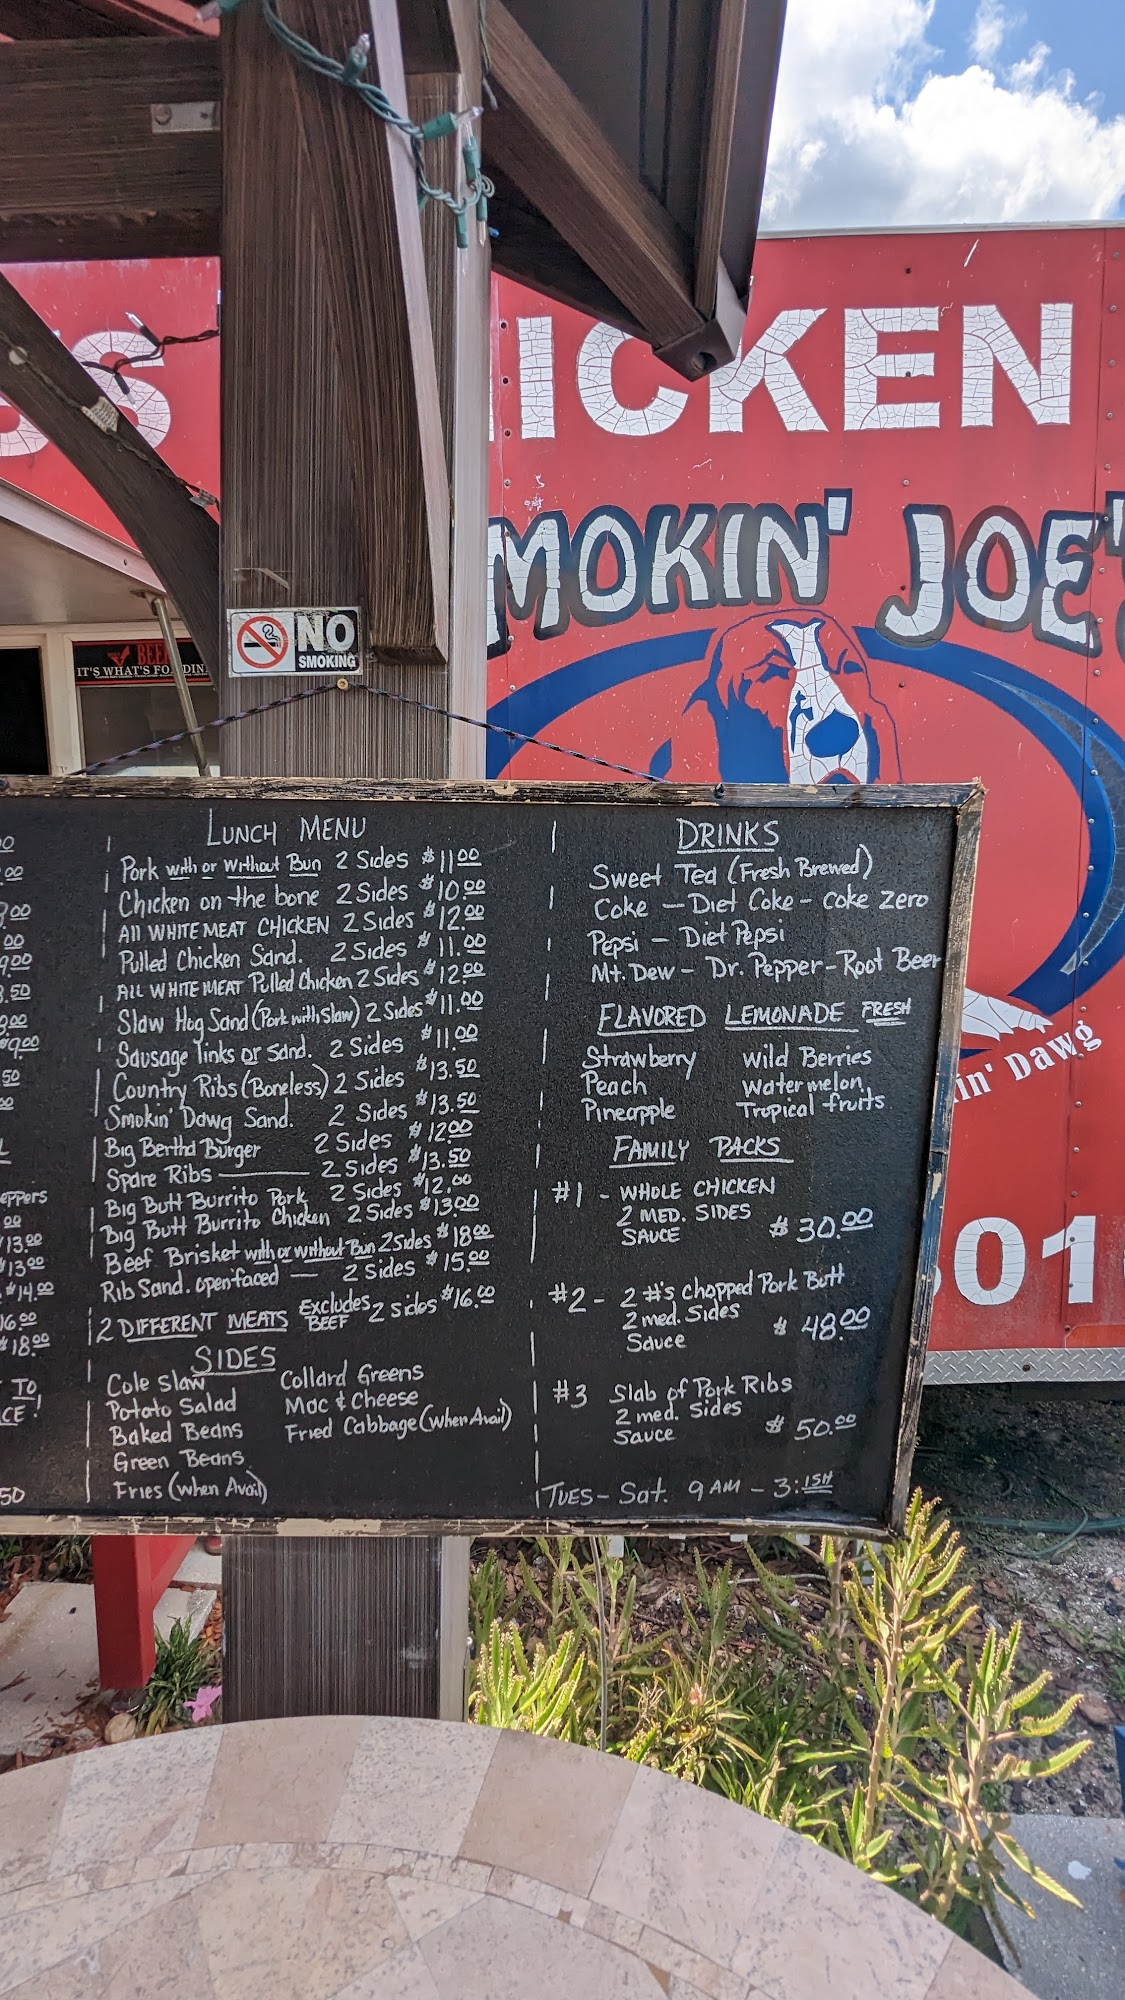 ICKEN
MOKIN' JOE'
NO
SMOKING
BEEF
IT'S WHAT'S FO DIN
in' Dawg
01
00
.00
.00
00
9.00
.50
.00
$9.00
50
00
eppers
.00
$13.00
$13.00
$14.00
16.00
$18.00
TO
CE!
50
LUNCH MENU
Pork with or without Bun 2 Sides $11.00
Chicken on the bone 2 Sides $10.00
All WHITE MEAT CHICKEN 2 Sides $12.00
Pulled Chicken Sand. 2 Sides $11.00
ALL WHITE MEAT Pulled Chicken 2 Sides $12.00
Slaw Hog Sand (Pork with Slaw) 2 Sides $11.00
Sausage links or Sand. 2 Sides $11.00
Country Ribs (Boneless) 2 Sides $13.50
Smokin' Dawg Sand. 2 Sides $13.50
Big Bertha Burger 2 Sides $12.00
Spare Ribs — 2 Sides $13.50
Big Butt Burrito Pork 2 Sides $12.00
Big Butt Burrito Chicken 2 Sides $13.00
Beef Brisket with or without Bun 2 Sides $18.00
Rib Sand. open faced — 2 Sides $15.00
2 DIFFERENT MEATS Excludes BEEF 2 sides $16.00
SIDES
Cole Slaw Collard Greens
Potato Salad Mac & Cheese
Baked Beans Fried Cabbage (when Avail)
Green Beans
Fries (when Avail)
DRINKS
Sweet Tea (Fresh Brewed)
Coke — Diet Coke - coke zero
Pepsi — Diet Pepsi
Mt. Dew - Dr. Pepper - Root Beer
FLAVORED LEMONADE FRESH
Strawberry Wild Berries
Peach Watermelon
Pineapple Tropical fruits
FAMILY PACKS
#1 - WHOLE CHICKEN
2 MED. SIDES
SAUCE $30.00
#2 - 2 #'s chopped Pork Butt
2 med. Sides
Sauce $48.00
#3 Slab of Pork Ribs
2 med. Sides
Sauce $50.00
TUES - Sat. 9 AM - 3:ISH